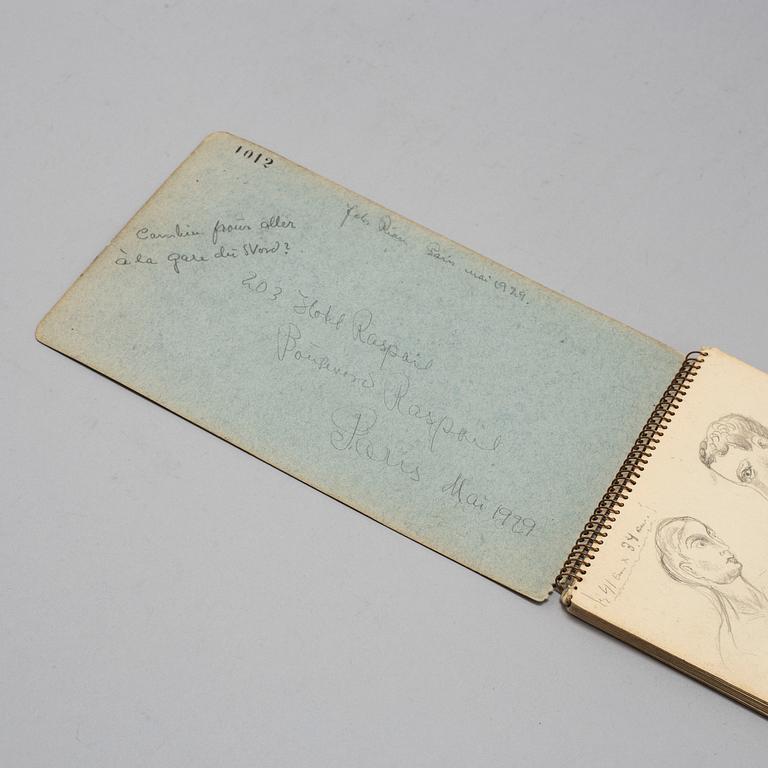 1012
Paris mai 1929.
Combien pour aller
à la gare du Nord?
203 Hotel Raspail
Boulevard Raspail
Paris Mai 1929
41 cm x 34 cm